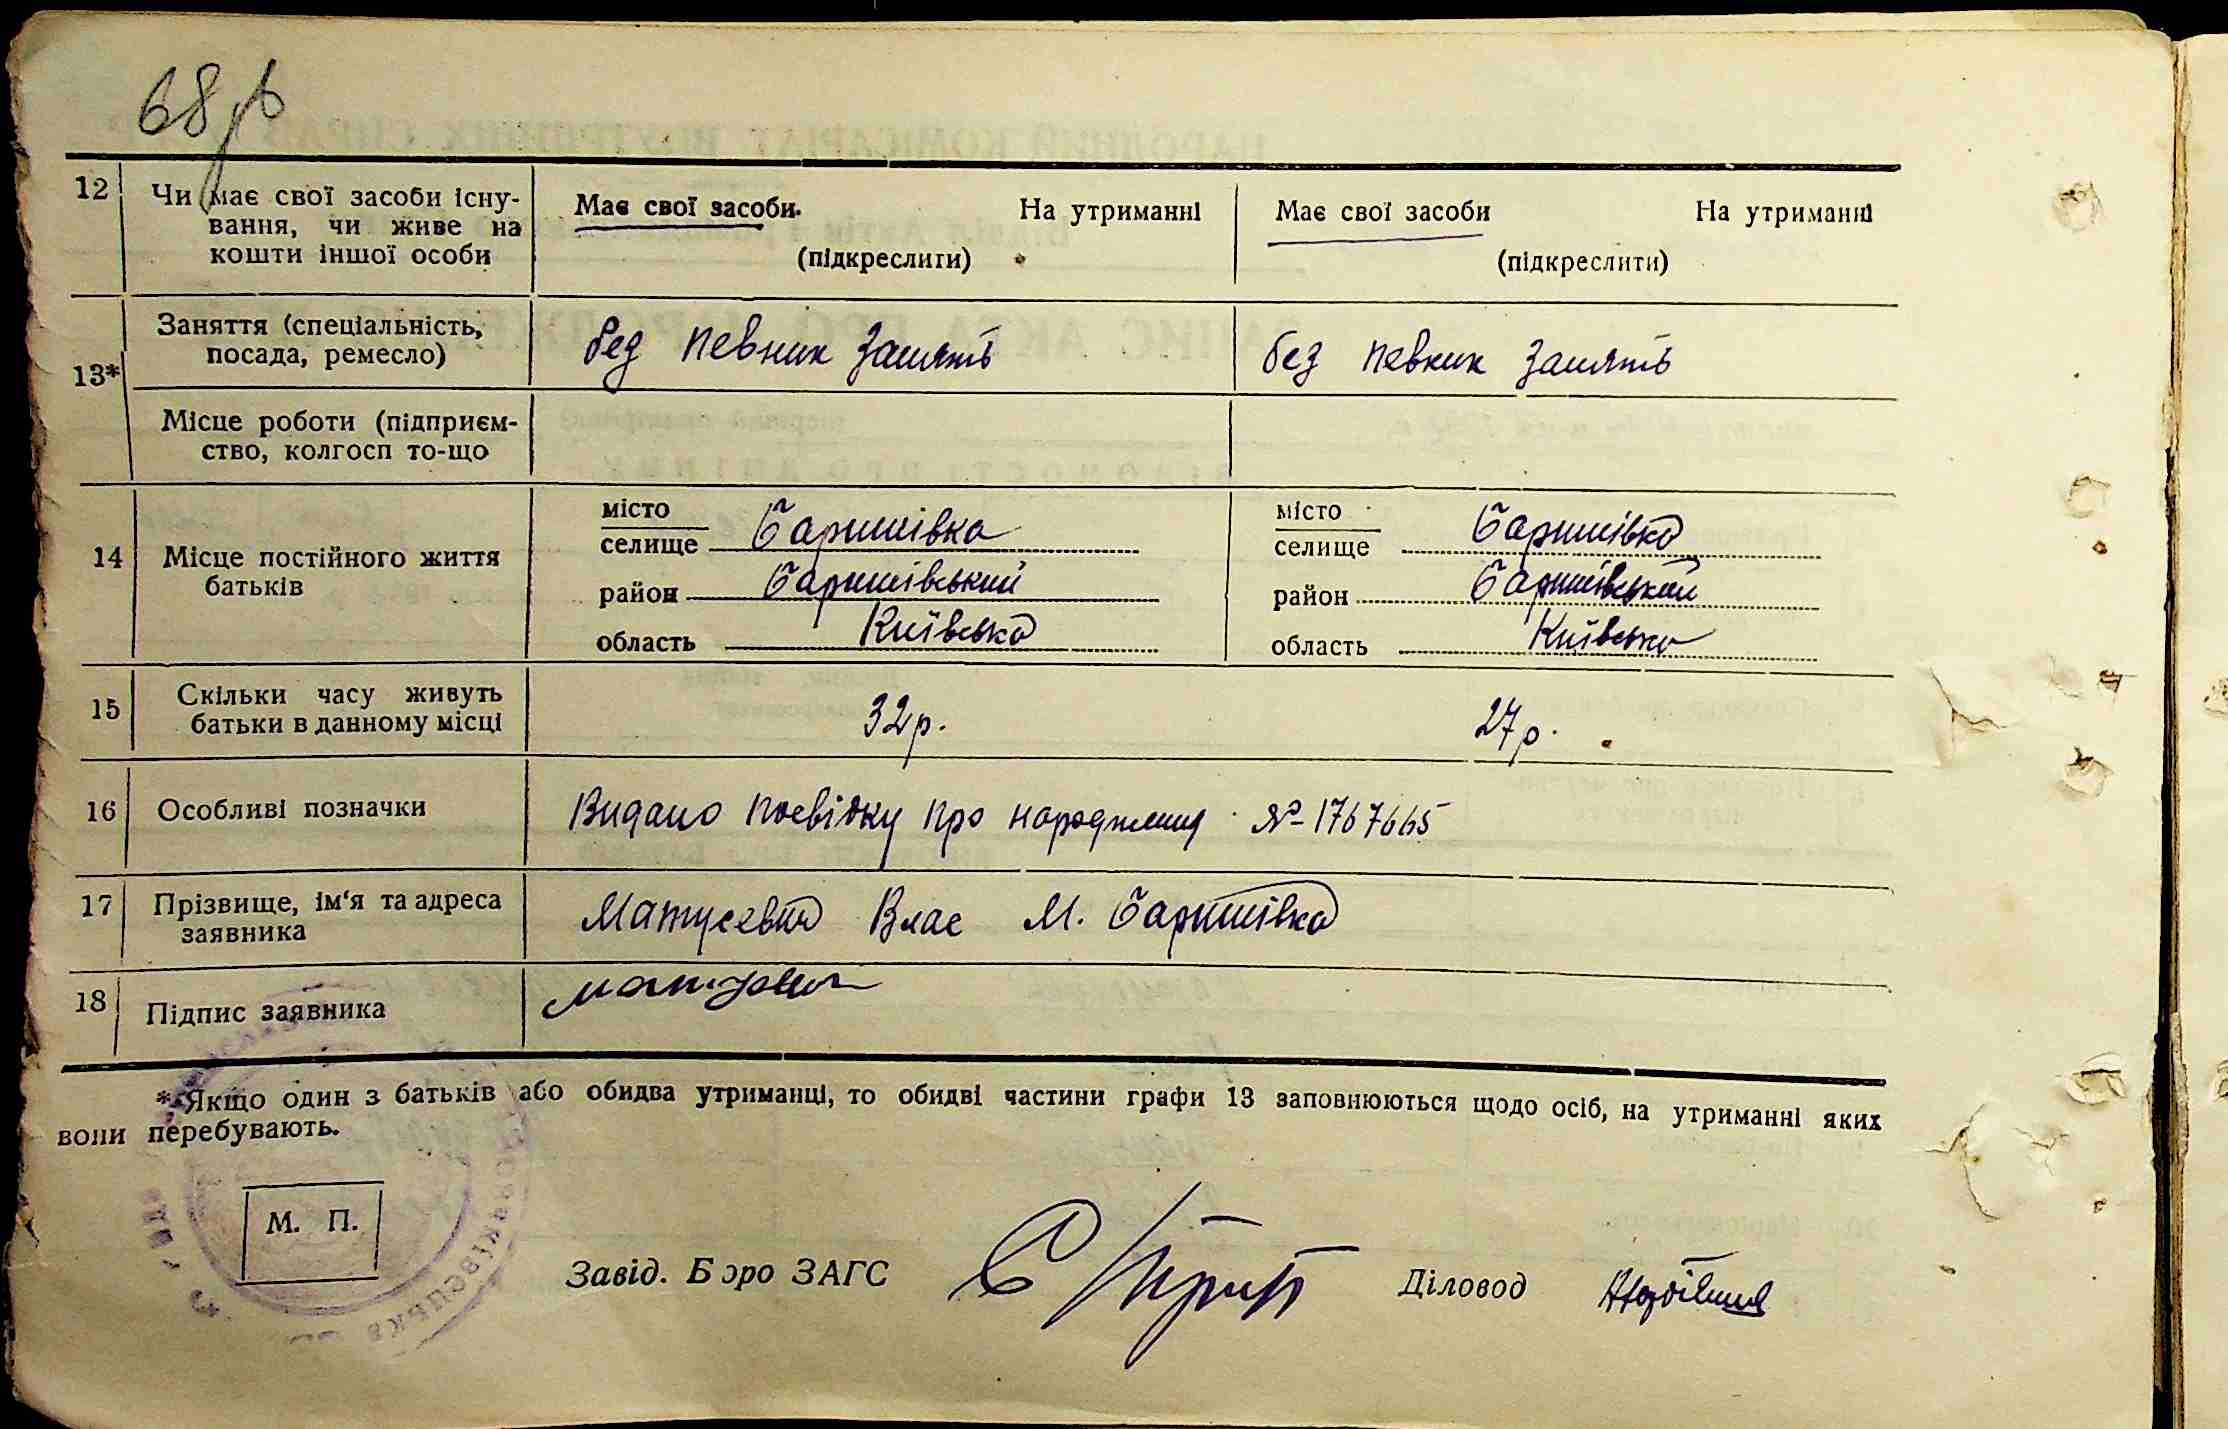 68
12 Чи має свої засоби існу-
вання, чи живе на
кошти іншої особи
Має свої засоби. На утриманні
(підкреслити)
Має свої засоби На утриманні
(підкреслити)
13*
Заняття (спеціальність,
посада, ремесло)
без певних занять
без певних занять
Місце роботи (підприєм-
ство, колгосп то-що
14 Місце постійного життя
батьків
місто
селище Баришівка
район Баришівський
область Київська
місто
селище Баришівка
район Баришівський
область Київська
15 Скільки часу живуть
батьки в данному місці
32р.
27р.
16 Особливі позначки
Видано посвідку про народження № 1767665
17 Прізвище, ім'я та адреса
заявника
Матусевич Влас М. Баришівка
18 Підпис заявника
* Якщо один з батьків або обидва утриманці, то обидві частини графи 13 заповнюються щодо осіб, на утриманні яких
вони перебувають.
М. П.
Завід. Бюро ЗАГС
Діловод